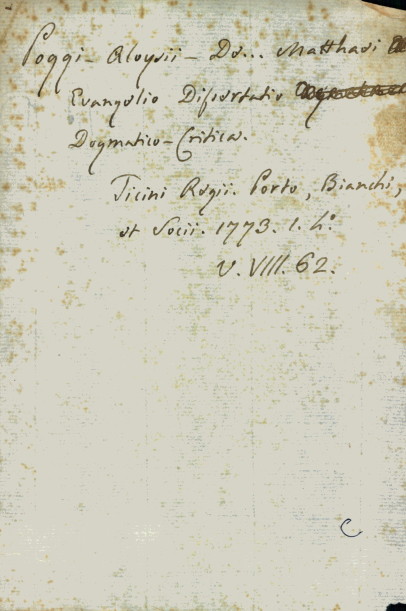 Poggi - Aloysii - De... Matthaei
Evangelio Dissertatio
Dogmatico-Critica.
Ticini Regii. Porto, Bianchi,
et Socii. 1773. 1. 4°.
V. VIII. 62.
C